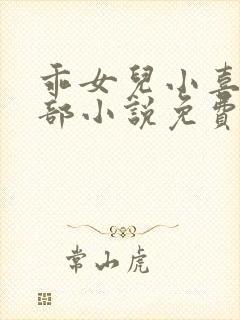 乖女兒小喜
部小說免費
常山虎